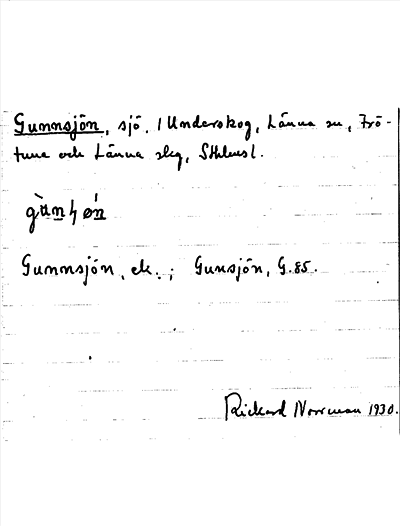 Gunnsjön, sjö, / Underskog, Länna sn, Frö-
tuna och Länna skg, Sthlmsl.
gùnɧøn
Gunnsjön, ek.; Gunsjön, G.85.
Rickard Norrman 1930.